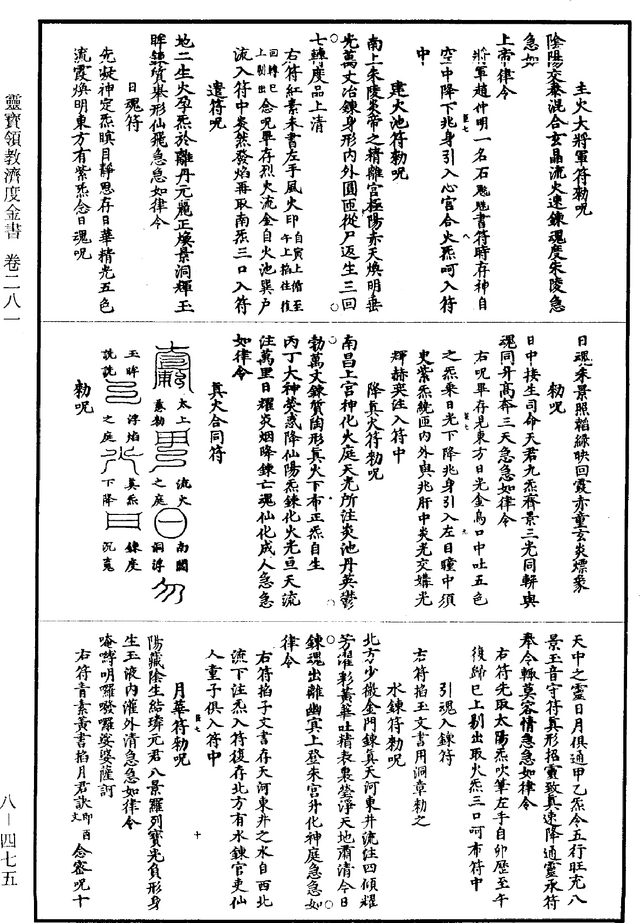 主火大將軍符勅呪
陰陽交泰混合玄晶流火速鍊魂度朱陵急
急如
上帝律令
將軍趙仲明一名石書符時存神自
空中降下兆身引入心宮合火炁呵入符
中
建火池符勅呪
南上朱陵炎帝之精離宮極陽赤天煥明垂
光萬丈冶鍊身形內外圓匝從尸返生三回
七轉度品上清
右符紅素朱書左手風火印自寅上掐至午上掐住復回轉巳上剔出念呪畢存烈火流金自火池巽戶
流入符中炎然發焰再取南炁三口入符
遣符呪
地二生火孕炁於離丹元飛正煥景洞輝玉
眸鍊質舉形仙飛急急如律令
日魂符
先凝神定炁瞑目靜思存日華精光五色
流霞煥明東方有紫炁念日魂呪
日魂朱景照韜綠映回霞赤童玄炎熛象
勅呪
日中接生司命天君九炁齊景三光同軿與
魂同升高奔三天急急如律令
右呪畢存見東方日光金烏口中吐五色
之炁乘日光下降兆身引入左目瞳中須
臾紫炁繞匝內外與兆肝中炎光交媾光
輝赫奕注入符中
降真火符勅呪
南昌上宮神化火庭天光所注炎池丹英鬱
勃萬丈鍊質陶形真火下布正炁自生
丙丁大神熒惑降仙陽炁鍊化火光亘天流
注萬里日耀炎烟降鍊亡魂仙化成人急急
如律令
真火合同符
太上
流火
南閶
蒸勃
之庭
洞浮
玉眸
浮焰
莫炁
鍊度
說說
之庭
下降
沉䰟
勅呪
天中之靈日月俱通甲乙炁令五行旺充八
景玉音守符真形招靈致真速降通靈承符
奉令輒莫容情急急如律令
右符先取太陽炁吹筆左手自卯歷至午
復歸巳上剔出取火炁三口呵布符中
引魂入鍊符
右符掐玉文書用洞章勅之
水鍊符勅呪
北方少微金門鍊真天河東井流注四傾耀
芳濯彩黃華吐精表裏瑩淨天地肅清今日
鍊魂出離幽冥上登朱宮升化神庭急急如
律令
右符掐子文書存天河東井之水自西北
流下注炁入符復存北方有水鍊官吏仙
人童子俱入符中
月華符勅呪
陽藏陰生結璘元君八景羅列寶光負形身
生玉液內灌外清急急如律令
唵哱明囉發囉娑婆薩訶
右符青素黃書掐月君訣即酉文念密呪十
靈寶領教濟度金書　卷二八一
八－四七五